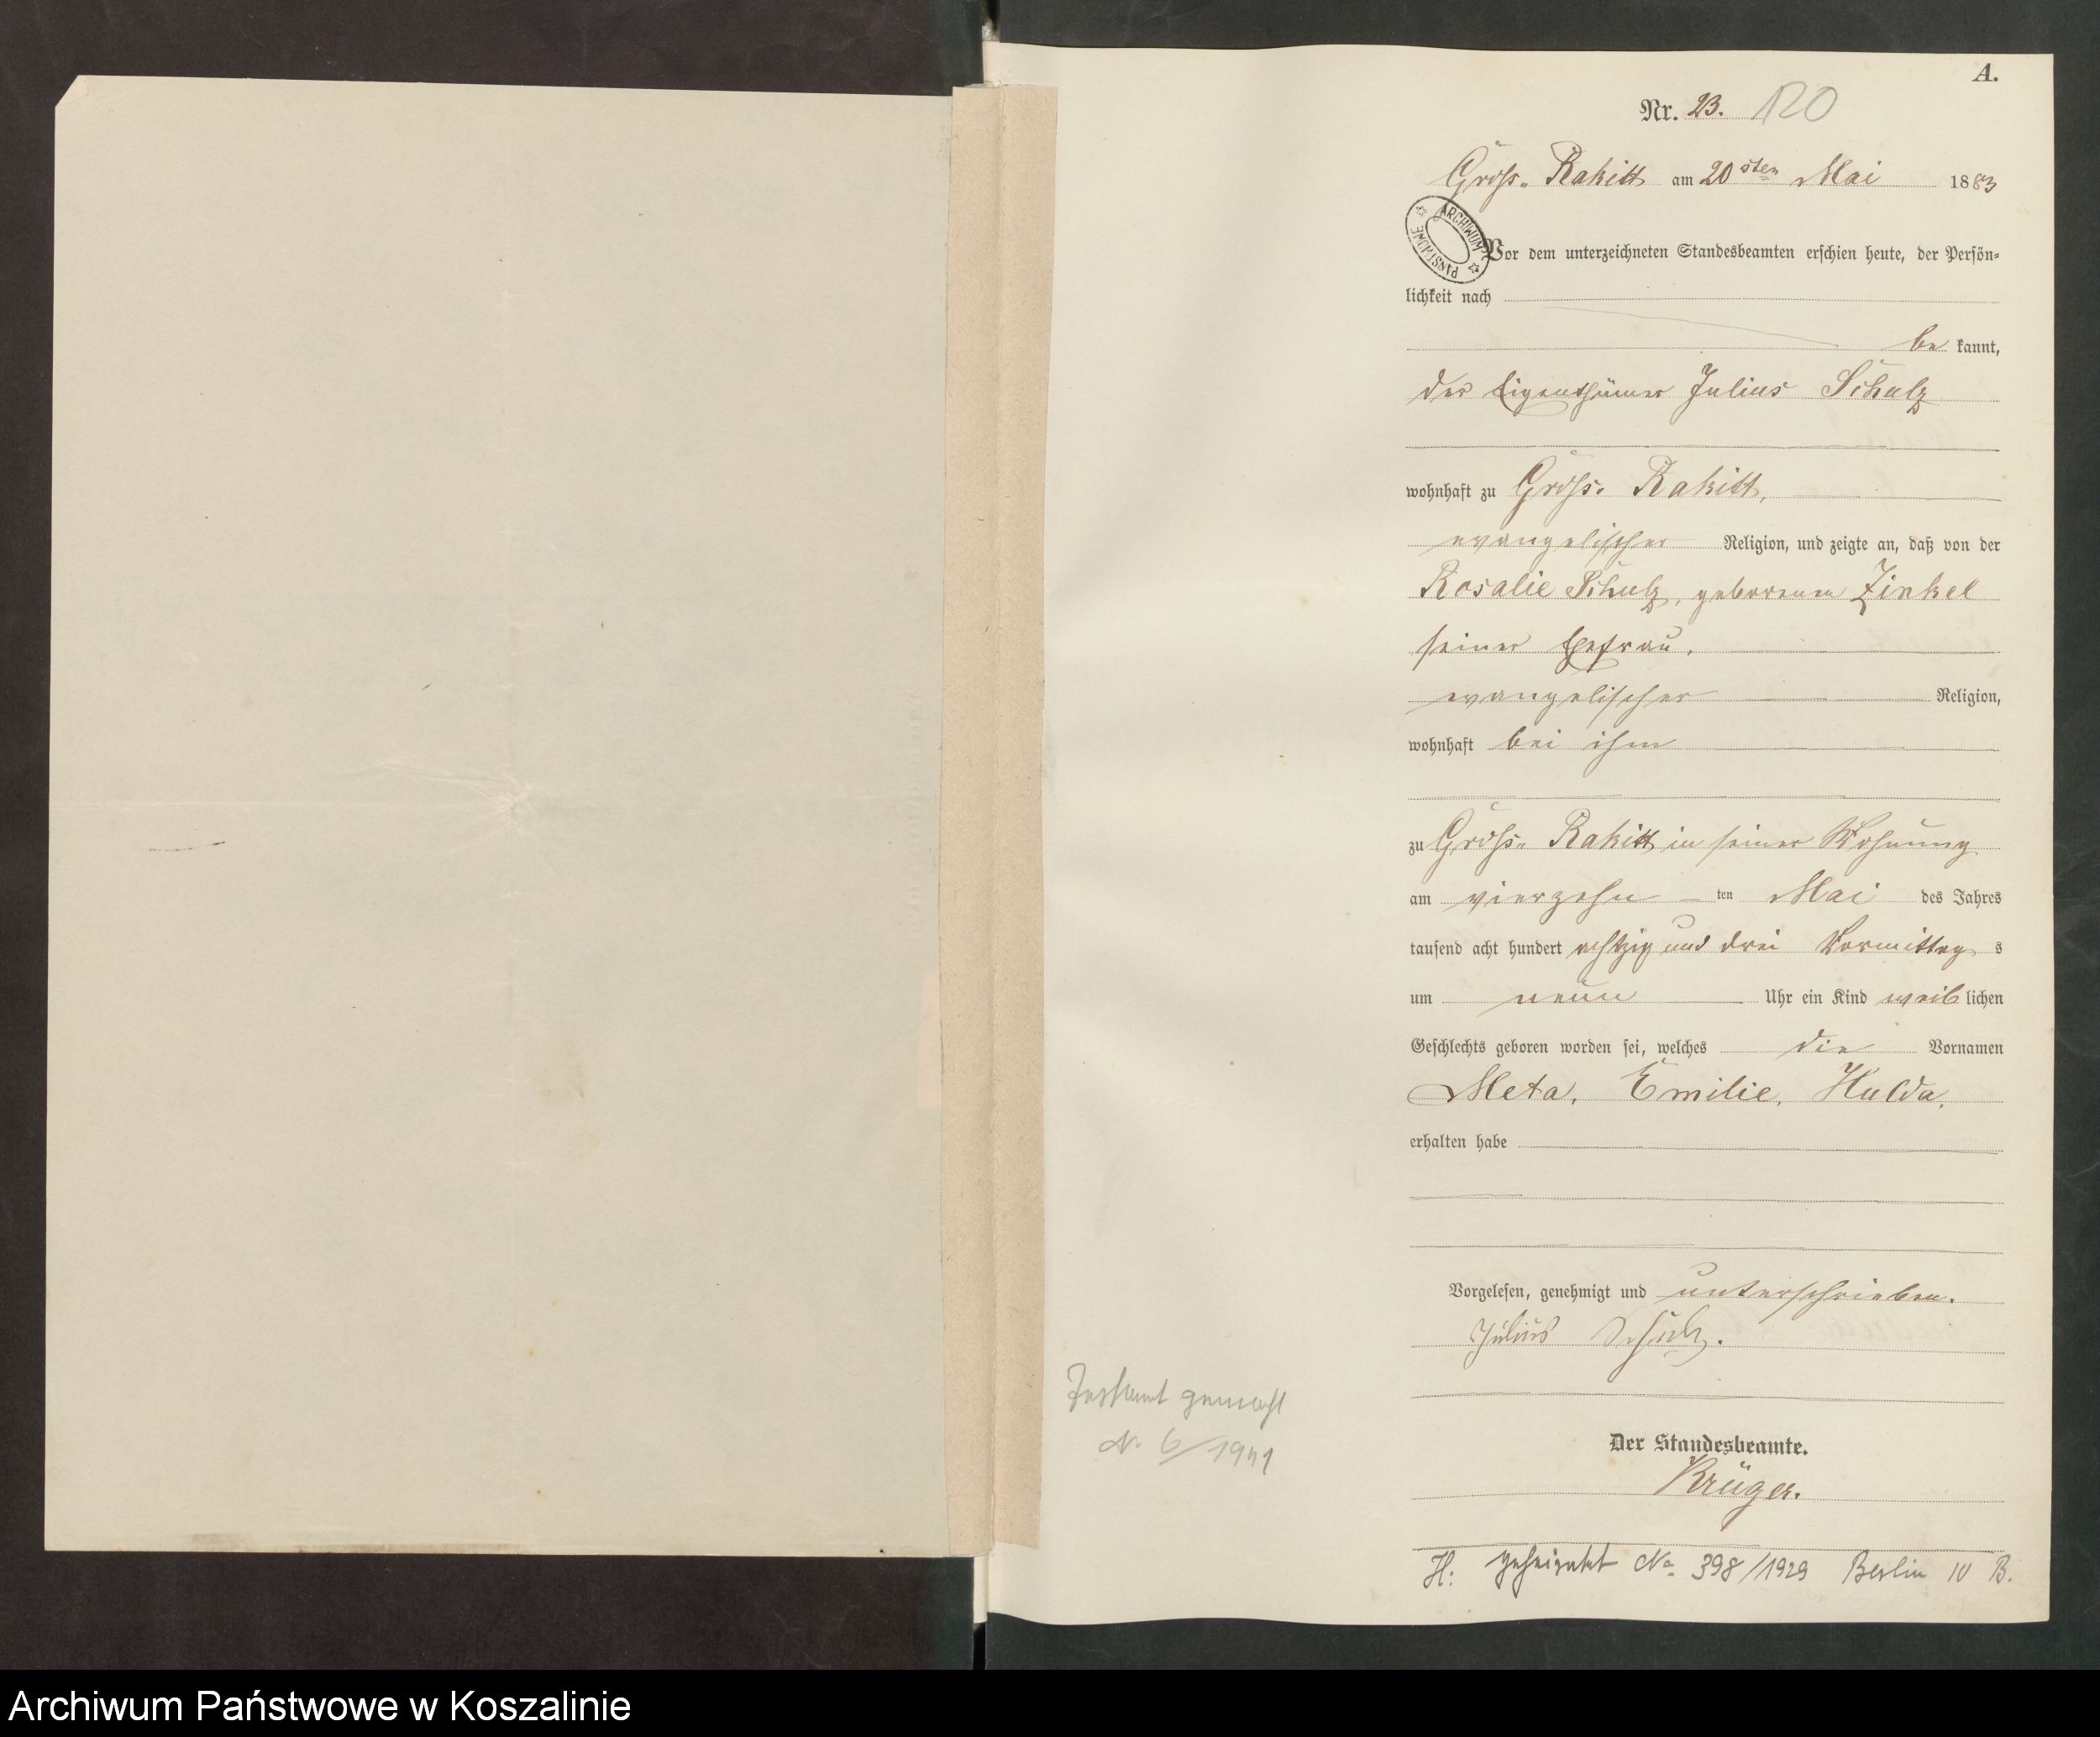 A.
Nr. 23. 120
Gross-Rakitt am 20sten Mai 1883
ARCHIWUM PAŃSTWOWE
Vor dem unterzeichneten Standesbeamten erschien heute, der Persön-
lichkeit nach
be kannt,
der Eigenthümer Julius Schulz
wohnhaft zu Gross-Rakitt,
evangelischer Religion, und zeigte an, daß von der
Rosalie Schulz, geborenen Zinkel
seiner Ehefrau,
evangelischer Religion,
wohnhaft bei ihm
zu Gross-Rakitt in seiner Wohnung
am vierzehn ten Mai des Jahres
tausend acht hundert achtzig und drei Vormittag s
um neun Uhr ein Kind weib lichen
Geschlechts geboren worden sei, welches die Vornamen
Meta, Emilie, Hulda,
erhalten habe
Vorgelesen, genehmigt und unterschrieben.
Julius Schulz.
Der Standesbeamte.
Krüger.
H: geheiratet No 398/1929 Berlin IV B.
gemacht
N. 6/1941
Archiwum Państwowe w Koszalinie